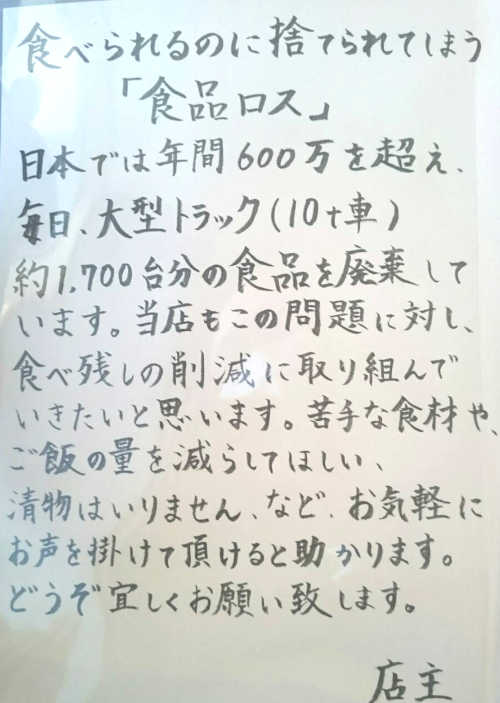 食べられるのに捨てられてしまう
「食品ロス」
日本では年間600万を超え、
毎日、大型トラック(10t車)
約1,700台分の食品を廃棄して
います。当店もこの問題に対し、
食べ残しの削減に取り組んで
いきたいと思います。苦手な食材や、
ご飯の量を減らしてほしい、
漬物はいりません、など、お気軽に
お声を掛けて頂けると助かります。
どうぞ宜しくお願い致します。
店主